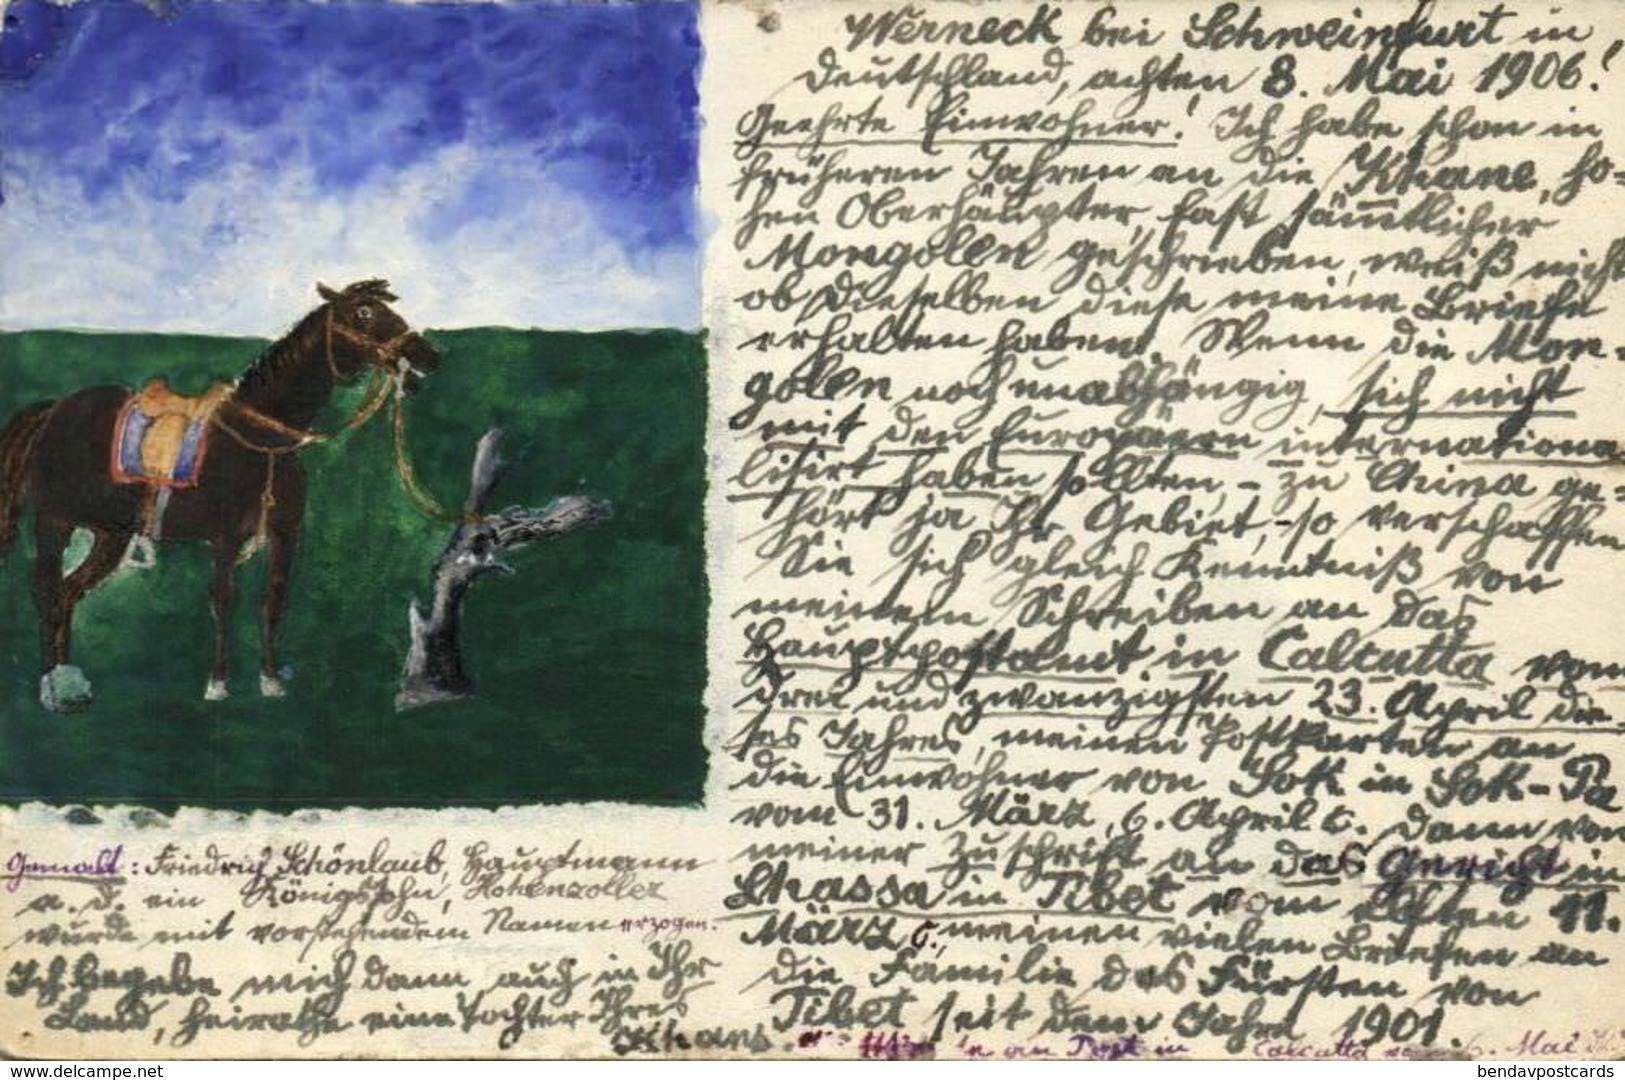 Werneck bei Schweinfurt in
Deutschland, achten 8. Mai 1906!
Geehrte Einwohner! Ich habe schon in
früheren Jahren an die Khane, ho=
hen Oberhäupter, fast sämmtlicher
Mongolen geschrieben, weiß nicht
ob dieselben diese meine Briefe
erhalten haben! Wenn die Mon-
golen noch unabhängig, sich nicht
mit den Europäern internationa
lisirt haben sollten, - zu China ge=
hört ja Ihr Gebiet, - so verschaffen
Sie sich gleich Kenntniß von
meinem Schreiben an das
Hauptpostamt in Calcutta vom
drei und zwanzigsten 23. April die-
ses Jahres, meinen Postkarten an
die Einwohner von Sok in Sok-Pa
vom 31. März, 6. April c. dann von
meiner Zuschrift an das Gericht in
Lhassa in Tibet vom elften 11.
März c., meinen vielen Briefen an
die Familie des Fürsten von
Tibet seit dem Jahre 1901.
Gemalt: Friedrich Schönlaub, Hauptmann
a. d. ein Königssohn, Hohenzoller
wurde mit vorstehendem Namen erzogen.
Ich begebe mich dann auch in Ihr
Land, heirathe eine Tochter Ihres
Khans.
an Post in Calcutta 6. Mai
delcampe.net
bendavpostcards